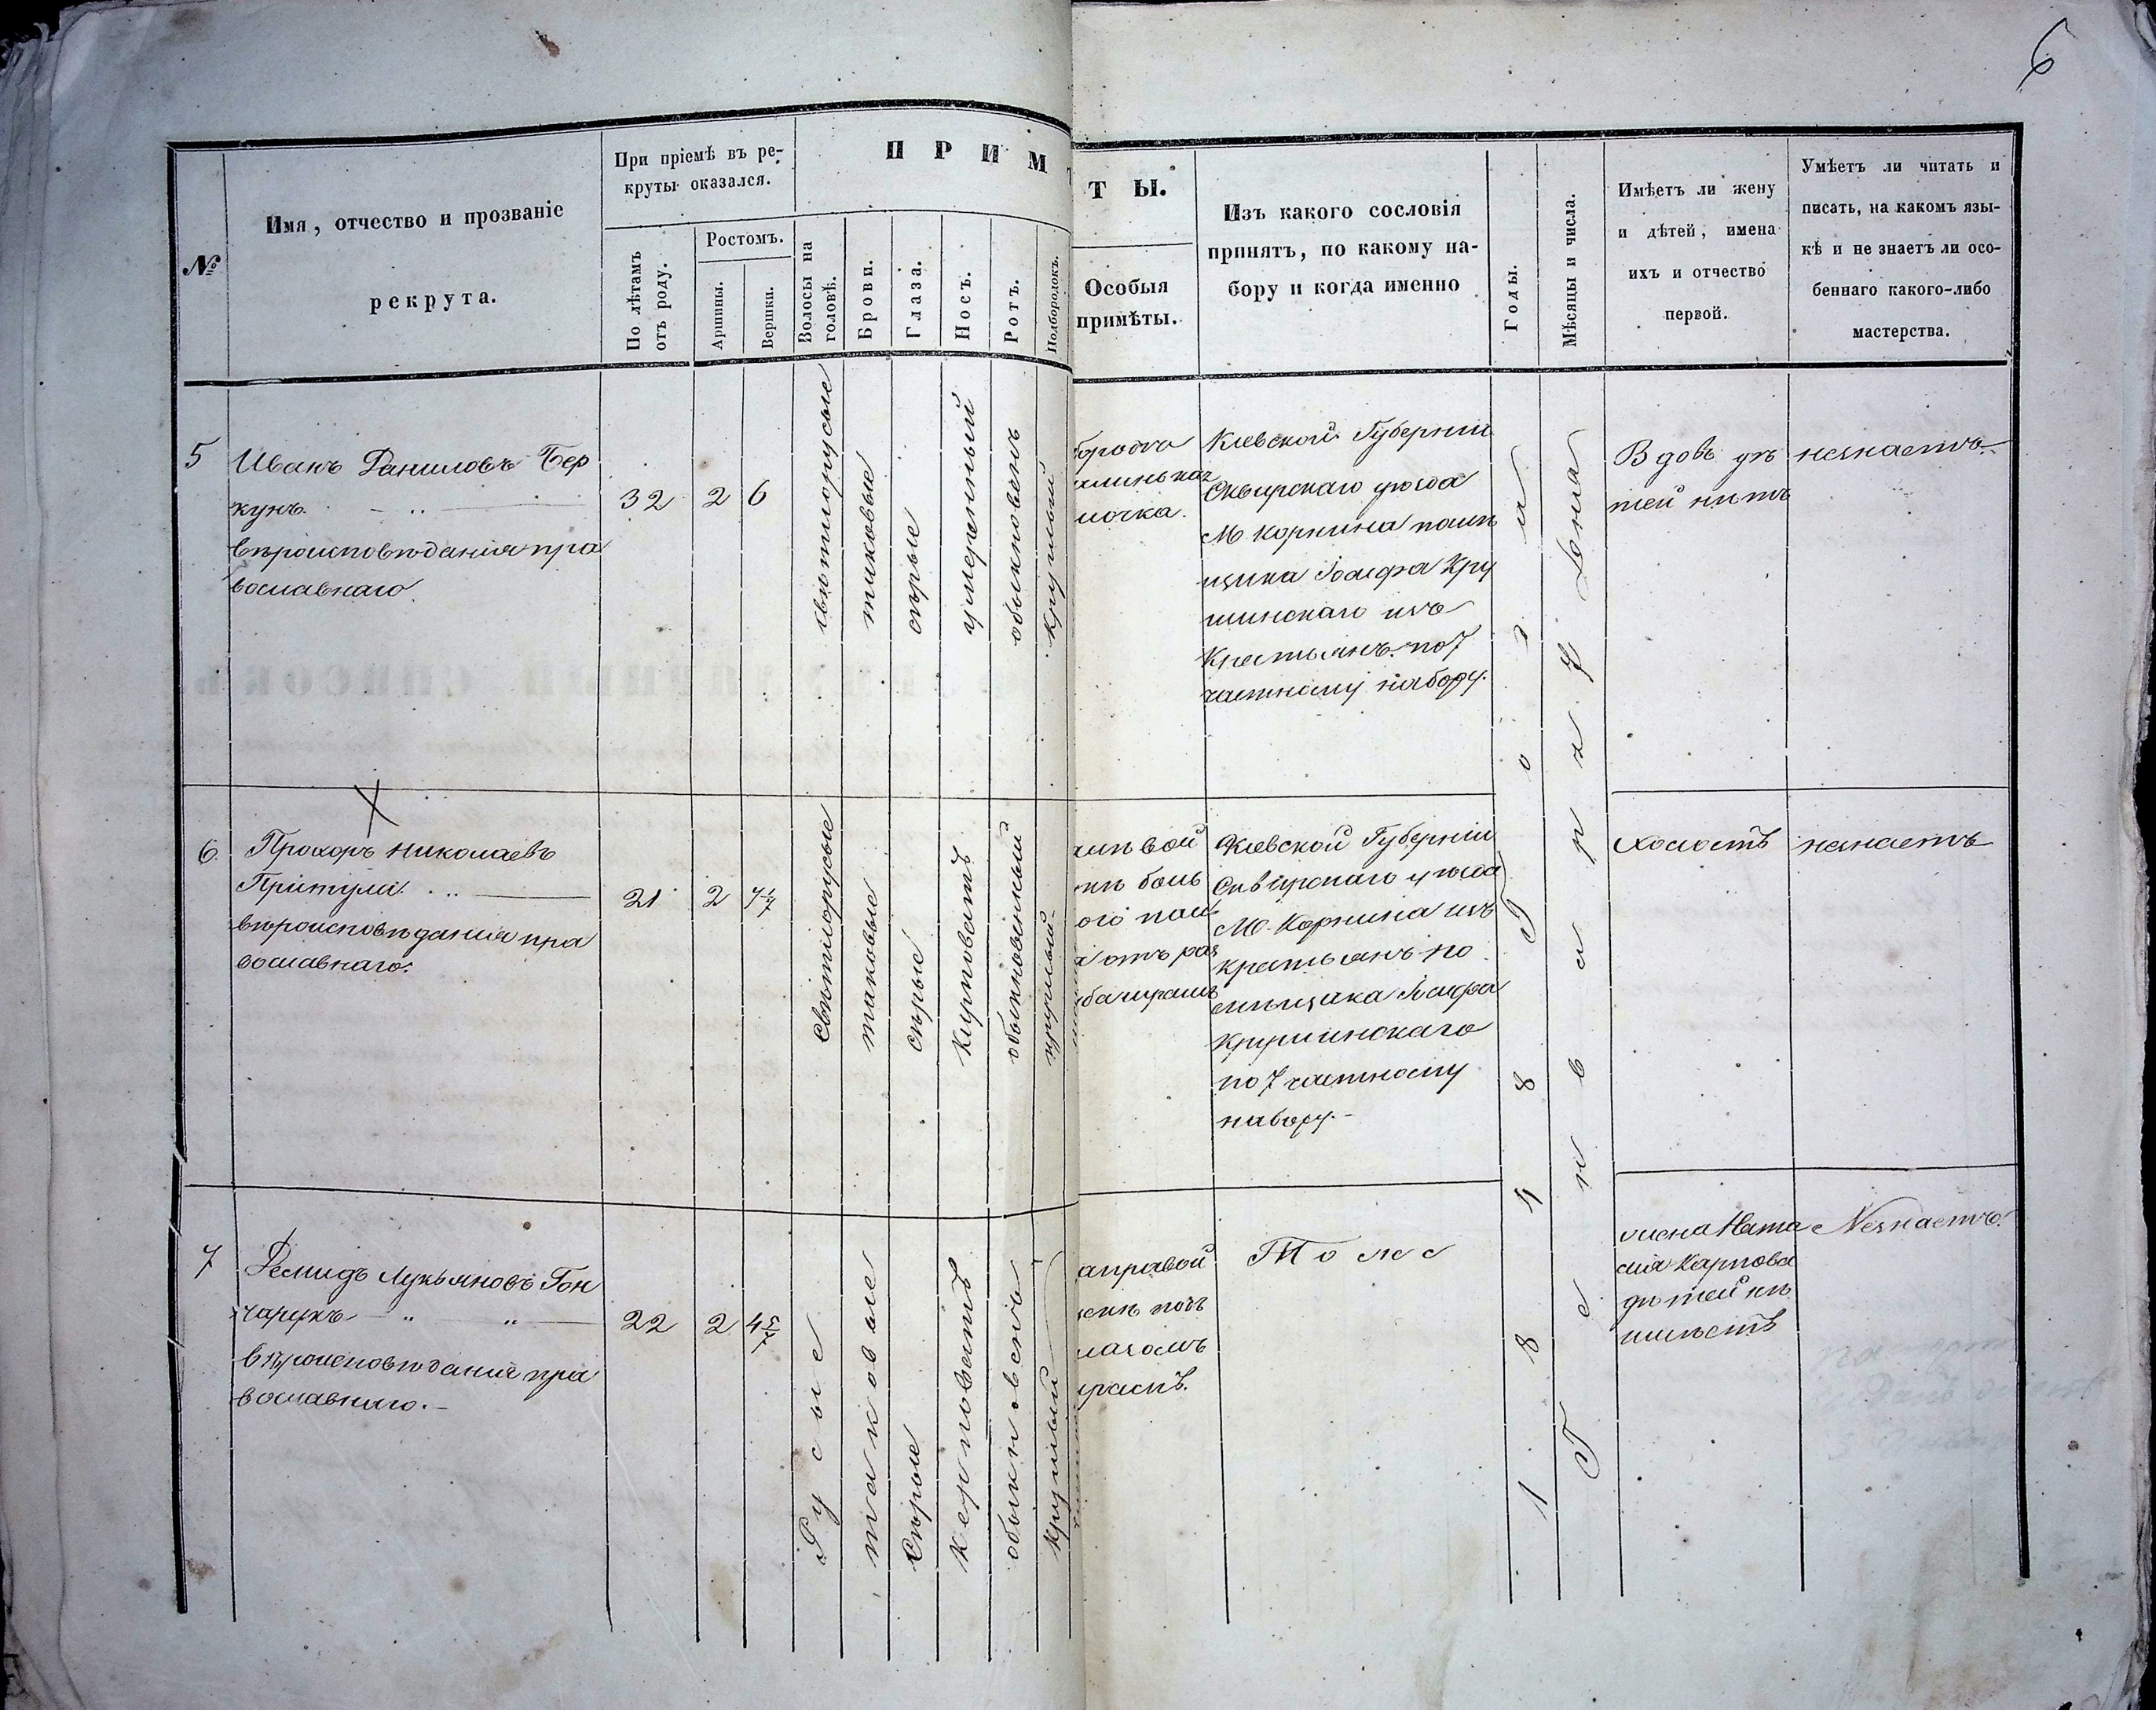 6
№
Имя, отчество и прозваніе
рекрута.
При пріемѣ въ ре-
круты оказался.
По лѣтамъ
отъ роду.
Ростомъ.
Аршины.
Вершки.
П Р И М
Т Ы.
Волосы на
головѣ.
Брови.
Глаза.
Носъ.
Ротъ.
Подбородокъ.
Особыя
примѣты.
Изъ какого сословія
принятъ, по какому на-
бору и когда именно
Годы.
Мѣсяцы и числа.
Имѣетъ ли жену
и дѣтей, имена
ихъ и отчество
первой.
Умѣетъ ли читать и
писать, на какомъ язы-
кѣ и не знаетъ ли осо-
беннаго какого-либо
мастерства.
5
Иванъ Даниловъ Бер
кунъ
вѣроисповѣданія пра
вославнаго
32
2
6
свѣтлорусые
таковые
сѣрые
умеренный
обыкновенъ
круглый
Кіевской Губерніи
Сквирскаго уѣзда
М Корнина помѣ
щика Іосифа Кру
шинскаго изъ
Крестьянъ по 7
частному набору.
Вдовъ дѣ
тей нѣтъ
незнаетъ
6.
Прохоръ Николаевъ
Притула
вѣроисповѣданія пра
вославнаго.
21
2
свѣтлорусые
таковые
сѣрые
курповатъ
обыкновенный
круглый
Кіевской Губерніи
Сквирскаго уѣзда
М. Корнина изъ
крестьянъ по
мѣщика Іосифа
Крушинскаго
по 7 частному
набору.-
холостъ
незнаетъ
1 8 4 8 Года
Генваря 7 Дня
7
Демидъ Лукьяновъ Гон
чарукъ
вѣроисповѣданія пра
вославнаго.-
22
2
4 5/7
Русые
таковые
Сѣрые
керповатъ
обыкновенъ
круглый
аправой
Тоже
жена Ната
лія Карпова
дѣтей не
имѣетъ
Незнаетъ.